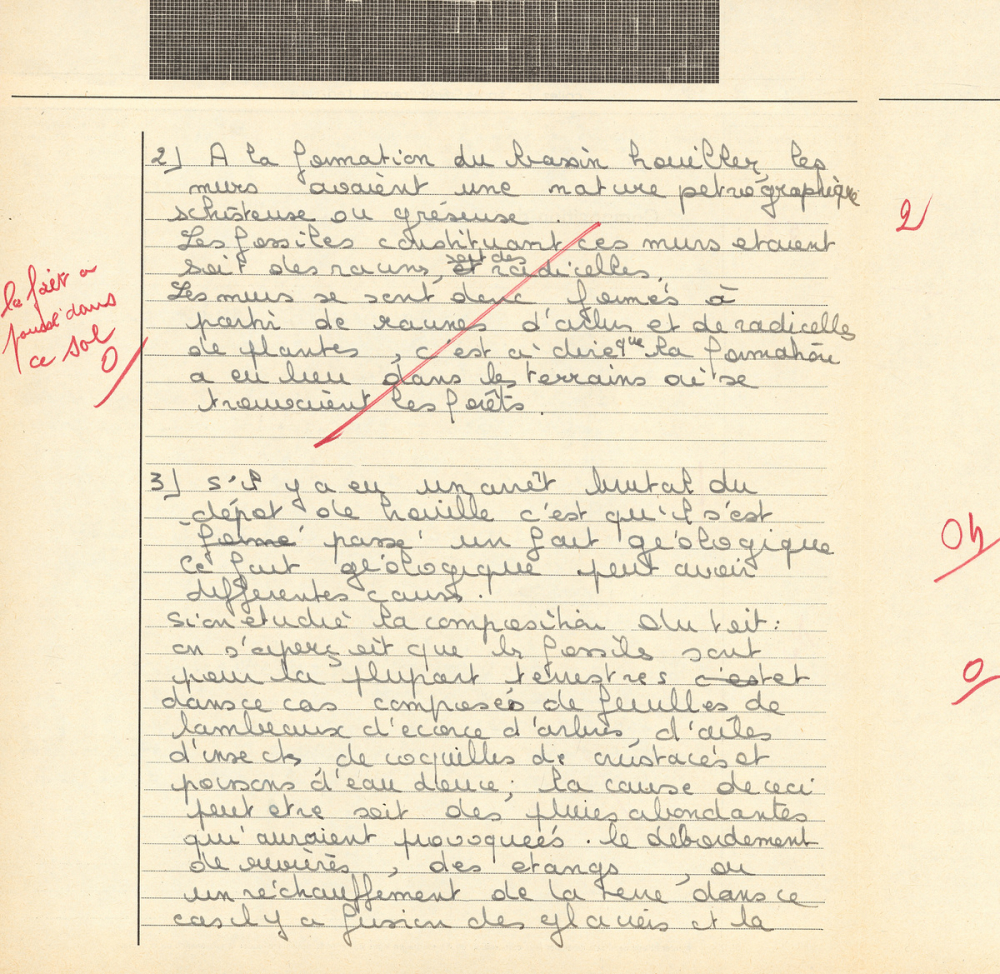 2) A la formation du bassin houiller, les
murs avaient une nature petrographique
schisteuse ou gréseuse.
Les fossiles constituant ces murs etaient
soit des racines, et soit des radicelles.
Les murs se sont donc formés à
parti de racines d'arbres et de radicelles
de plantes, c'est à dire que la formation
a eu lieu dans les terrains où se
trouvaient les forêts.
la forêt a
poussé dans
ce sol
0
2
3) s'il y a eu un arrêt brutal du
dépot de houille c'est qu'il s'est
formé passé un fait géologique
Ce fait géologique peut avoir
differentes causes.
si on étudie la composition du toit:
on s'aperçoit que les fossils sont
pour la plupart terrestres c'est et
dans ce cas composés de feuilles de
lambeaux d'écorce d'arbres, d'ailes
d'insects, de coquilles de crustacés et
poissons d'eau douce; la cause de ceci
peut etre soit des pluies abondantes
qui auraient provoqueés le débordement
de rivières, des etangs, ou
un réchauffement de la terre dans ce
cas il y a fusion des glaciers et la
0h
0